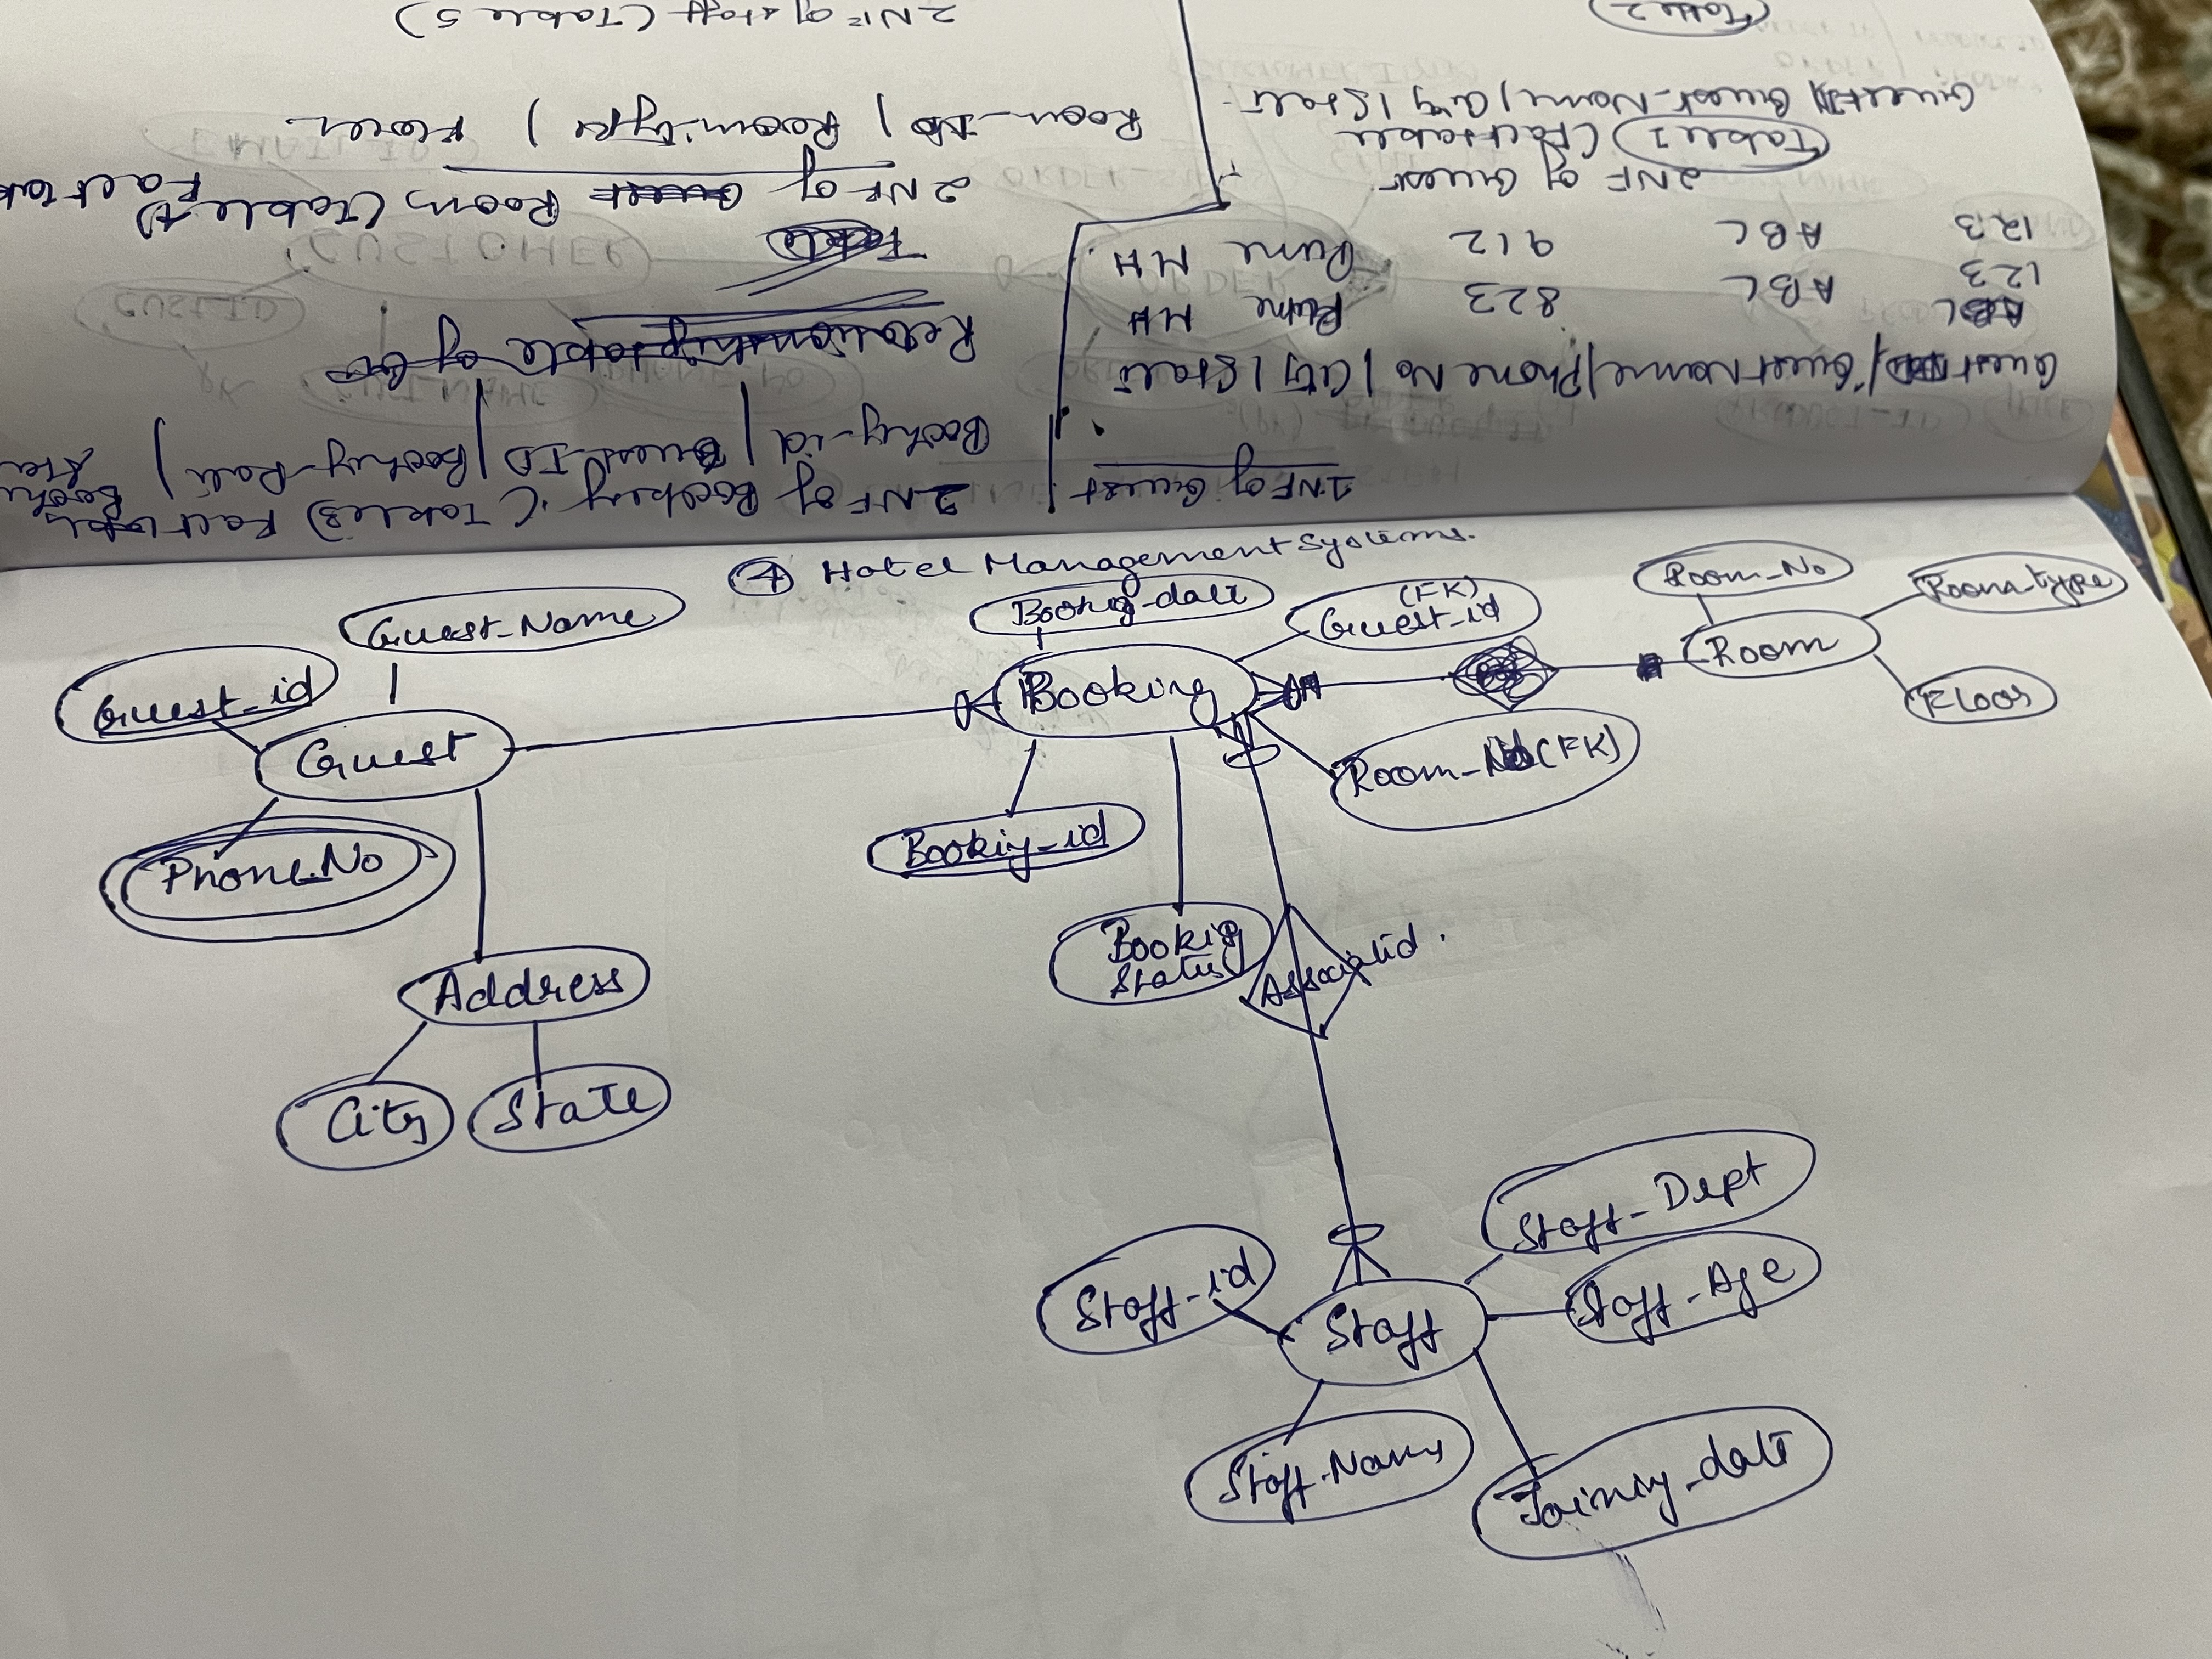 ④ Hotel Management System.
Guest_id
Guest_Name
Guest
Phone_No
Address
City
State
Booking_date
Booking
Booking_id
Booking
Status
(FK)
Guest_id
Room_No(FK)
Room_No
Room
Room_type
Floor
Staff_id
Staff
Staff_Name
Staff_Dept
Staff_Age
Joining_date
1NF of Guest
GuestID/GuestName/Phone No/City/State
123 ABC 823 Pune MH
123 ABC 912 Pune MH
2NF of Guest
Table 1 (Fact table
Guest_Name/City/State
Table 2
2NF of Booking (Table 3) Fact table
Booking_id | Guest_ID | Booking_Date |
2NF of Room (Table 4)
Fact
Room_No | Room_type | Floor
2NF of Staff (Table 5)